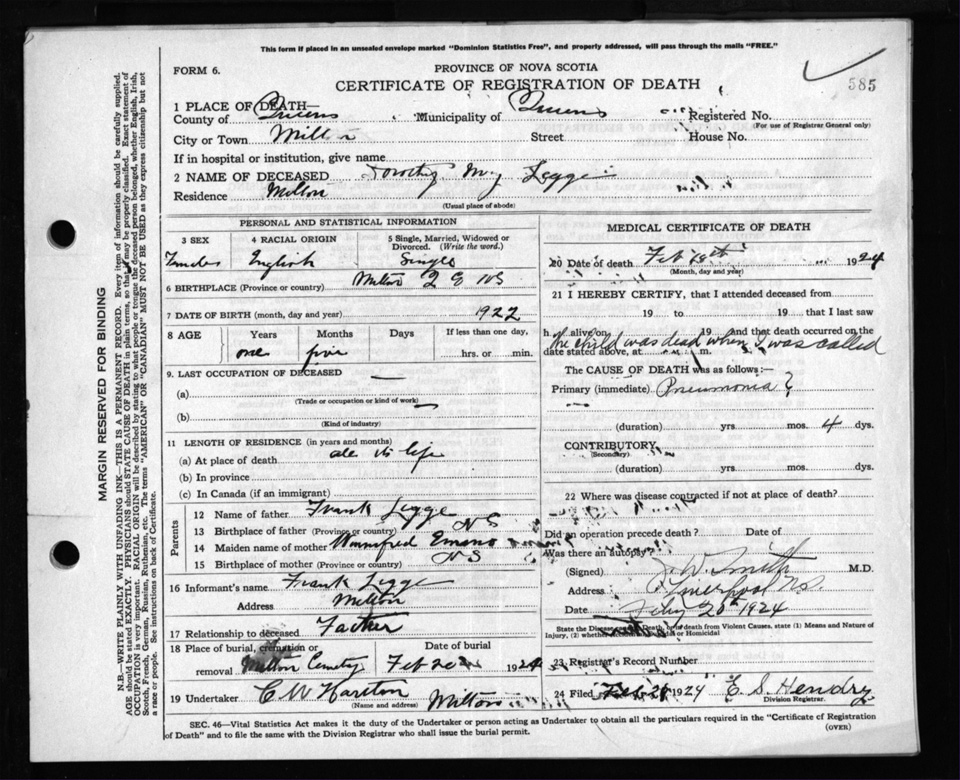 This form if placed in an unsealed envelope marked "Dominion Statistics Free", and properly addressed, will pass through the mails "FREE."
FORM 6.
PROVINCE OF NOVA SCOTIA
CERTIFICATE OF REGISTRATION OF DEATH
585
1 PLACE OF DEATH—
County of Queens Municipality of Queens Registered No.
(For use of Registrar General only)
City or Town Milton Street House No.
If in hospital or institution, give name
2 NAME OF DECEASED Dorothy May Legge
Residence Milton
(Usual place of abode)
PERSONAL AND STATISTICAL INFORMATION
3 SEX 4 RACIAL ORIGIN 5 Single, Married, Widowed or Divorced. (Write the word.)
Female English Single
6 BIRTHPLACE (Province or country) Milton Q NS
7 DATE OF BIRTH (month, day and year) 1922
8 AGE Years Months Days If less than one day,
one five hrs. or min.
9. LAST OCCUPATION OF DECEASED —
(a)
(Trade or occupation or kind of work)
(b)
(Kind of industry)
11 LENGTH OF RESIDENCE (in years and months)
(a) At place of death all its life
(b) In province
(c) In Canada (if an immigrant)
Parents
12 Name of father Frank Legge
13 Birthplace of father (Province or country) NS
14 Maiden name of mother
15 Birthplace of mother (Province or country) NS
16 Informant's name Frank Legge
Address Milton
17 Relationship to deceased Father
18 Place of burial, cremation or removal Milton Cemetery
Date of burial Feb 20 1924
19 Undertaker C W
(Name and address) Milton
MEDICAL CERTIFICATE OF DEATH
20 Date of death Feb 1924
(Month, day and year)
21 I HEREBY CERTIFY, that I attended deceased from
19 to 19 that I last saw
h alive on 19 and that death occurred on the
the child was dead when I was called
date stated above, at m.
The CAUSE OF DEATH was as follows:—
Primary (immediate) Pneumonia?
(duration) yrs. mos. 4 dys.
CONTRIBUTORY
(Secondary)
(duration) yrs. mos. dys.
22 Where was disease contracted if not at place of death?
Did an operation precede death? Date of
Was there an autopsy?
(Signed) J. W. Smith M.D.
Address Liverpool N.S.
Date Feby 20th 1924
State the Disease causing Death, or in death from Violent Causes, state (1) Means and Nature of Injury, (2) whether Accidental, Suicidal or Homicidal
23 Registrar's Record Number
24 Filed Feb 1924 E. S. Hendry
Division Registrar.
SEC. 46—Vital Statistics Act makes it the duty of the Undertaker or person acting as Undertaker to obtain all the particulars required in the "Certificate of Registration of Death" and to file the same with the Division Registrar who shall issue the burial permit.
(OVER)
MARGIN RESERVED FOR BINDING
N.B.—WRITE PLAINLY WITH UNFADING INK—THIS IS A PERMANENT RECORD. Every item of information should be carefully supplied.
AGE should be stated EXACTLY. PHYSICIANS should STATE CAUSE OF DEATH in plain terms, so that it may be properly classified. Exact statement of
OCCUPATION is very important. RACIAL ORIGIN will be described by stating to what people or tongue the deceased person belonged, whether English, Irish,
Scotch, French, German, Russian, Ruthenian, etc. The terms "AMERICAN" or "CANADIAN" MUST NOT BE USED as they express citizenship but not
a race or people. See instructions on back of Certificate.